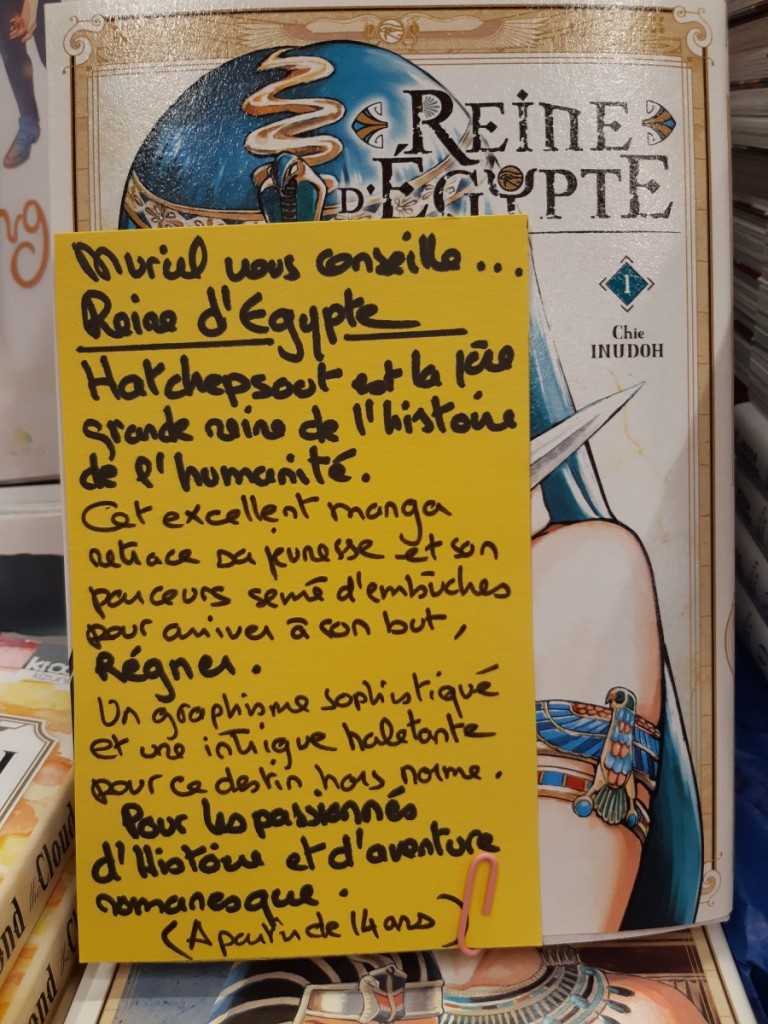 REINE
D'ÉGYPTE
1
Chie
INUDOH
Muriel vous conseille...
Reine d'Egypte
Hatchepsout est la 1ère
grande reine de l'histoire
de l'humanité.
Cet excellent manga
retrace sa jeunesse et son
parcours semé d'embûches
pour arriver à son but,
Régner.
Un graphisme sophistiqué
et une intrigue haletante
pour ce destin hors norme.
Pour les passionnés
d'Histoire et d'aventure
romanesque.
(A partir de 14 ans)
ng
the Cloud
ond
ond